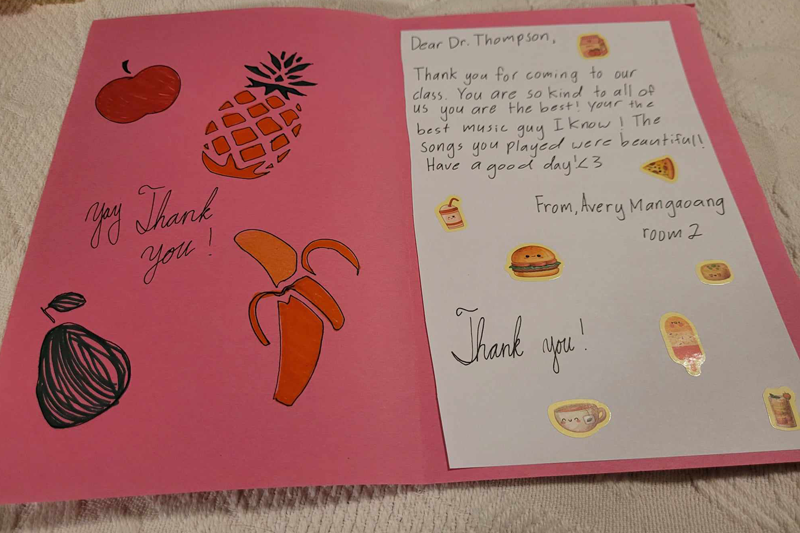 yay Thank
you!
Dear Dr. Thompson,
Thank you for coming to our
class. You are so kind to all of
us you are the best! Your the
best music guy I know! The
songs you played were beautiful!
Have a good day!<3
From, Avery Mangaoang
room 2
Thank you!